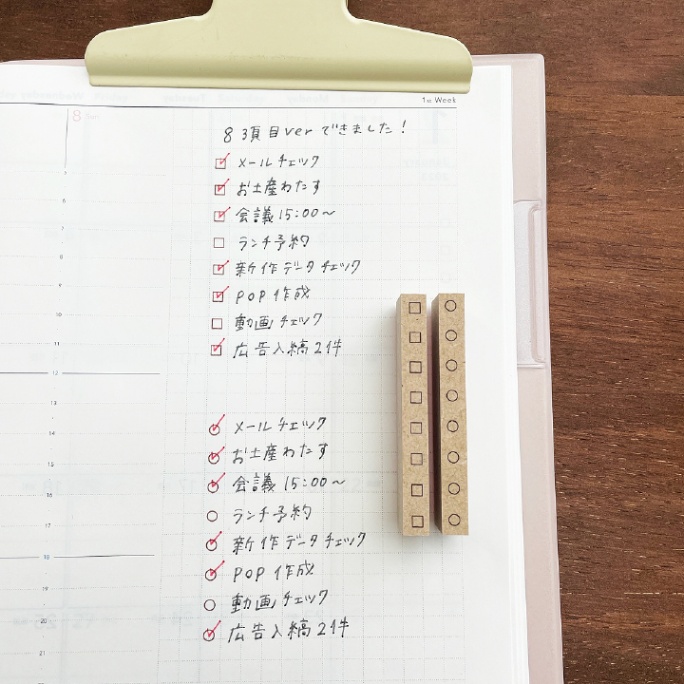 1st Week
8
8 3項目verできました!
メールチェック
お土産わたす
会議15:00〜
ランチ予約
新作データチェック
POP作成
動画チェック
広告入稿2件
メールチェック
お土産わたす
会議15:00〜
ランチ予約
新作データチェック
POP作成
動画チェック
広告入稿2件
12
18
19
20
21